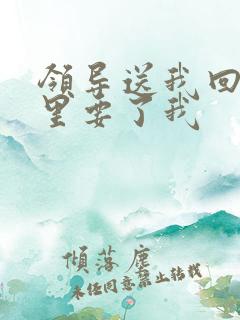 領导送我回
里要了我
傾落塵
未任同意禁止转载